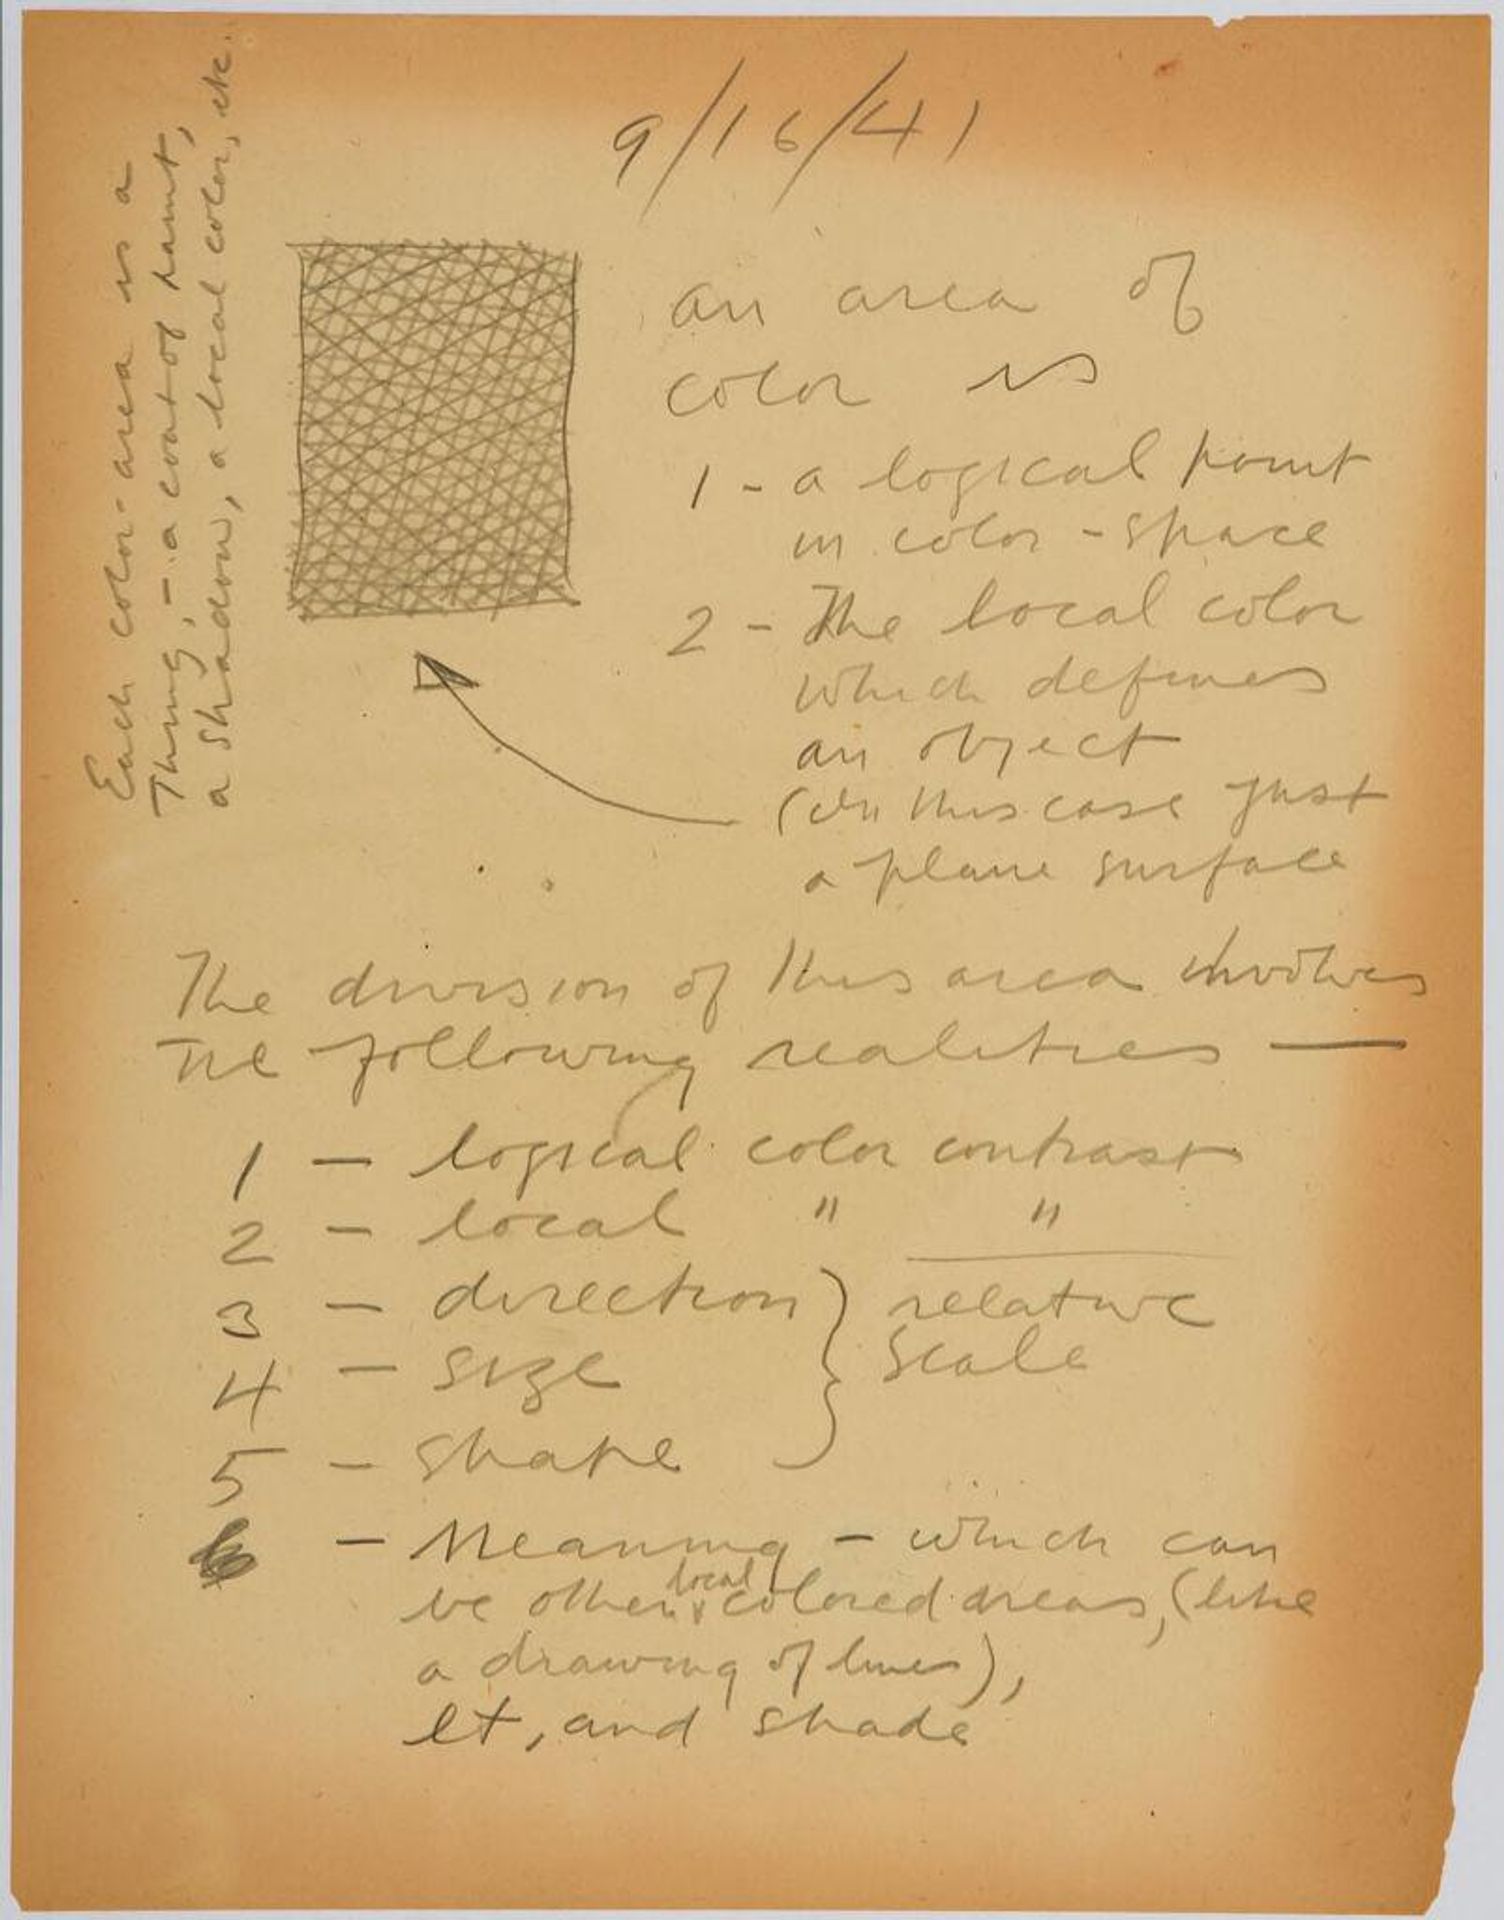 9/16/41
Each color-area is a
Thing, - a coat of paint,
a shadow, a local color, etc.
an area of
color is
1 - a logical point
in color - space
2 - The local color
which defines
an object
(in this case just
a plane surface
The division of this area involves
The following realities —
1 — logical color contrast
2 — local " "
3 — direction } relative
4 — size scale
5 — shape
6 — Meaning — which can
be other local colored areas, (like
a drawing of lines),
lt, and shade